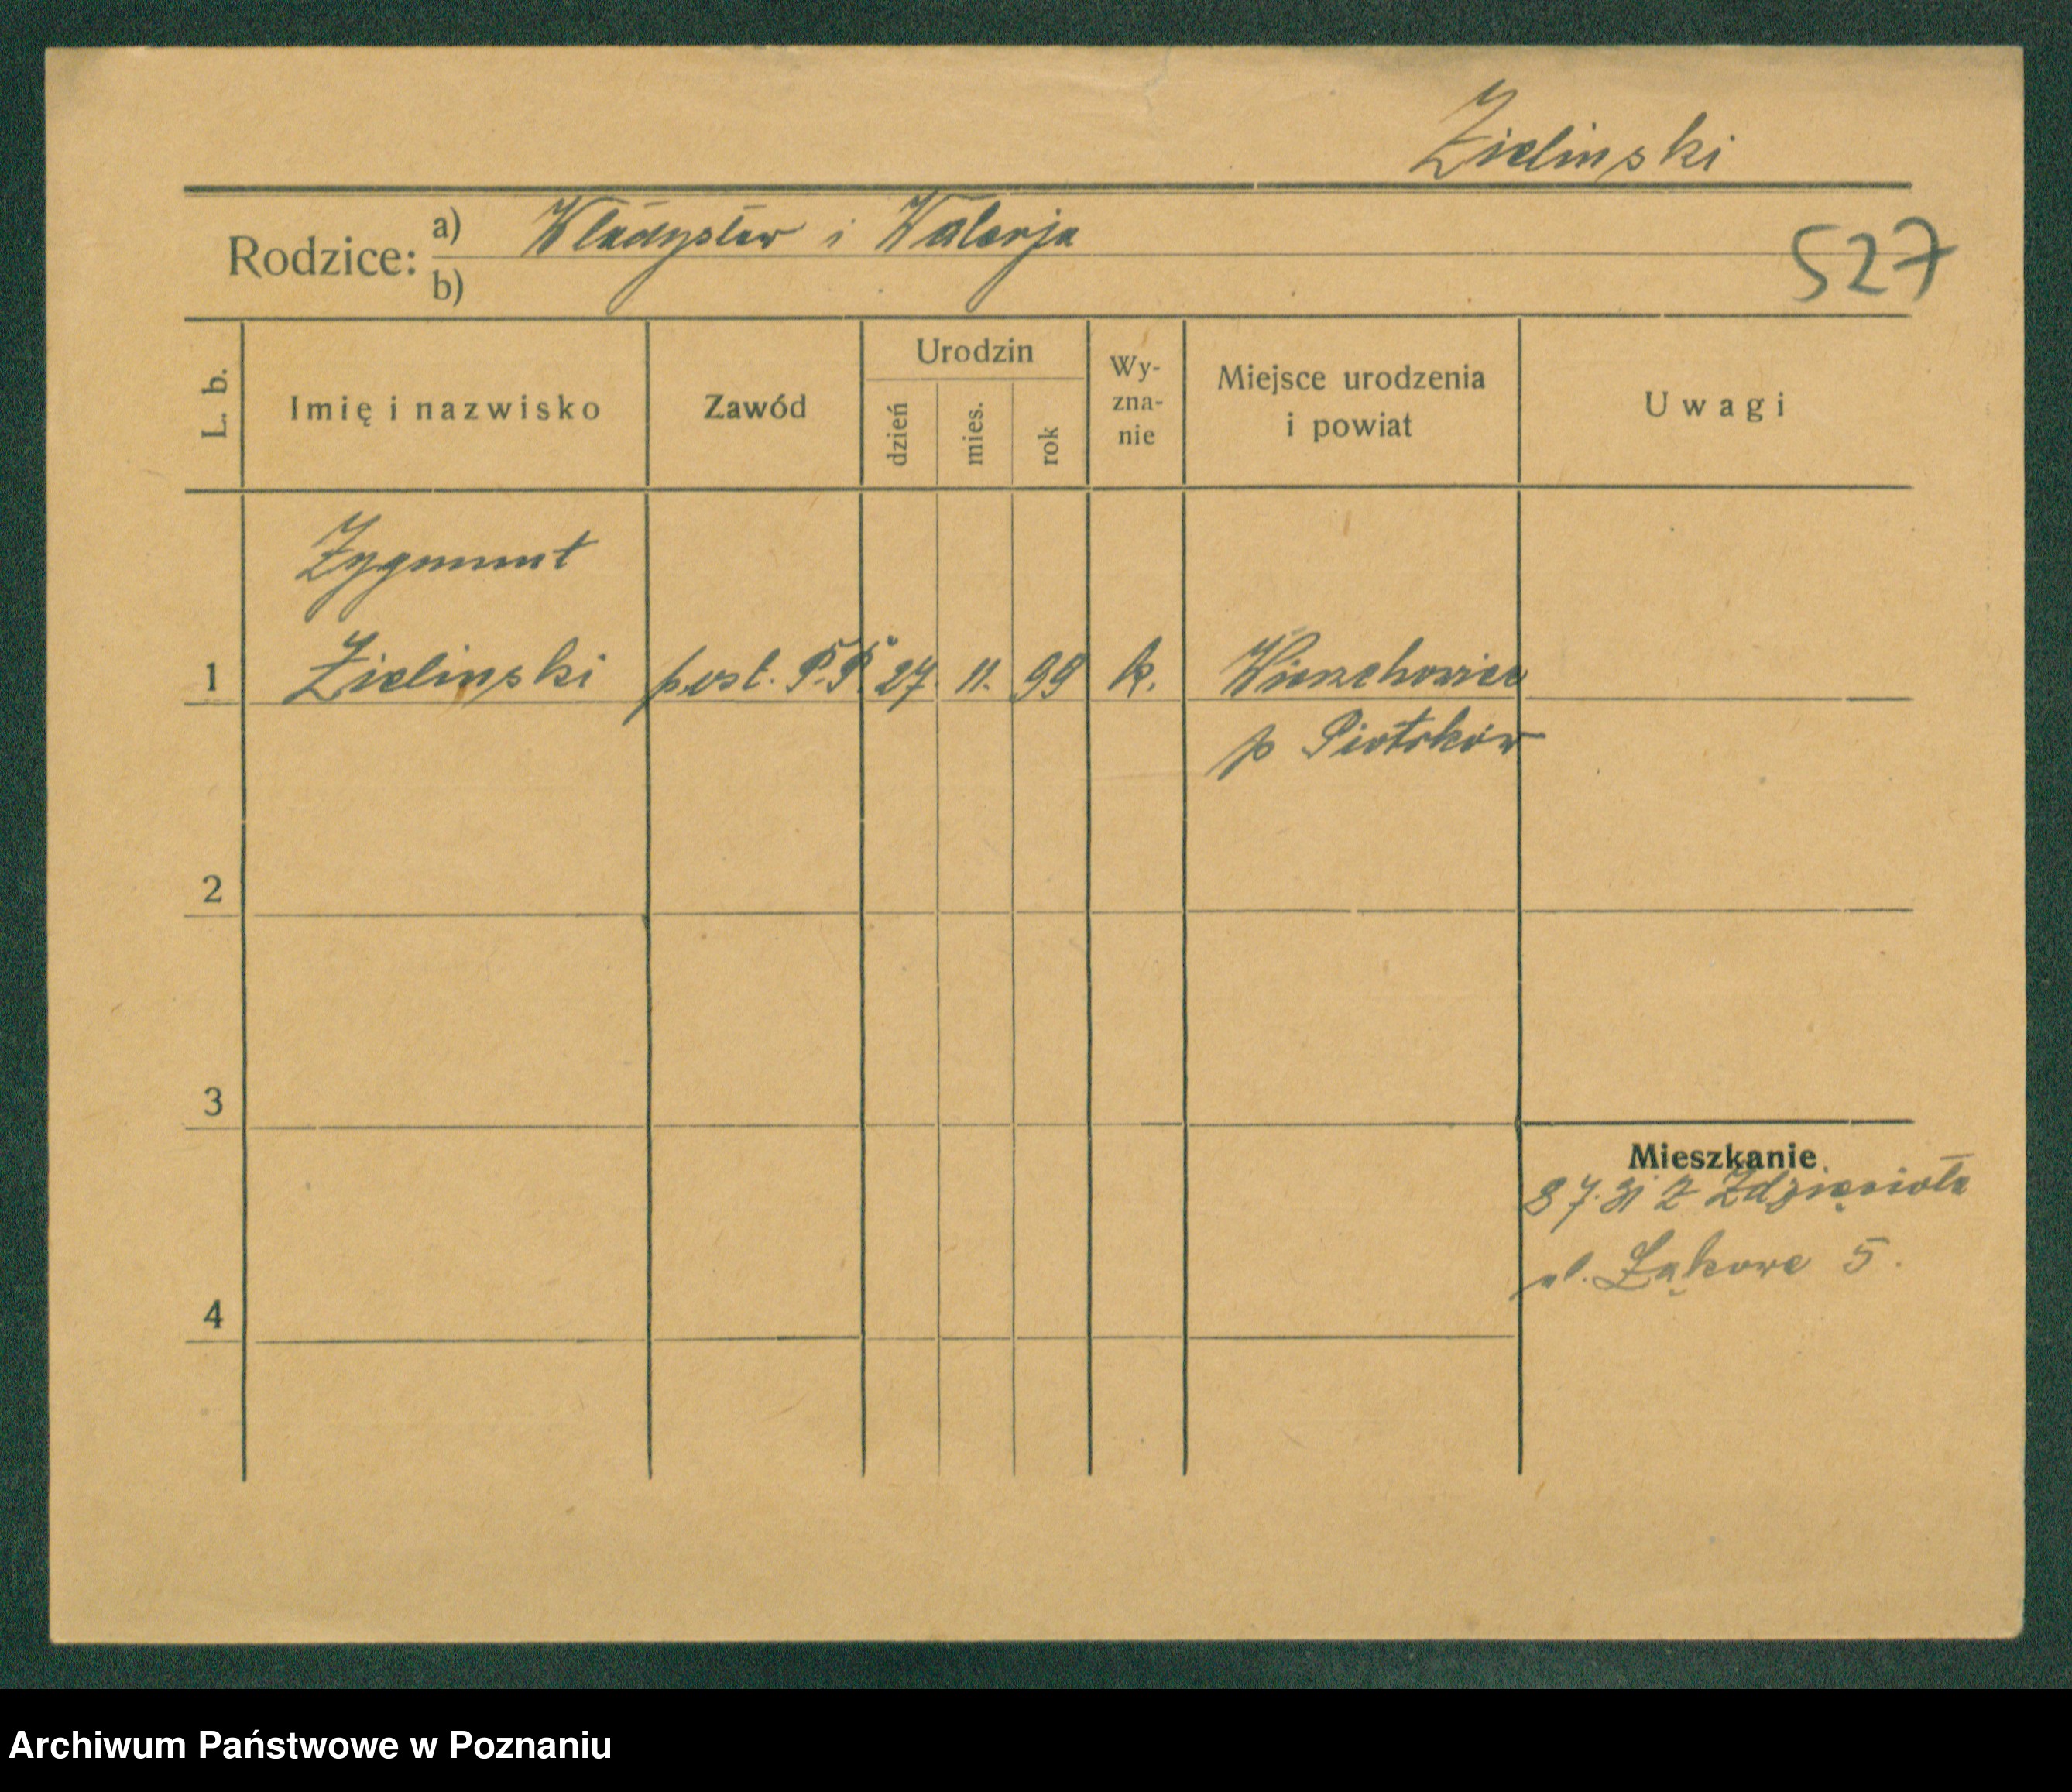 Zielinski
Rodzice: a) Władysław i Walerja
b)
527
L. b.
Imię i nazwisko
Zawód
Urodzin
dzień
mies.
rok
Wy-
zna-
nie
Miejsce urodzenia
i powiat
Uwagi
Zygmunt
1 Zielinski post. P.P. 27. 11. 99 k.
p Piotrków
2
3
4
Mieszkanie
8 7. 31 z Zdzięcioła
ul. Łąkowa 5.
Archiwum Państwowe w Poznaniu